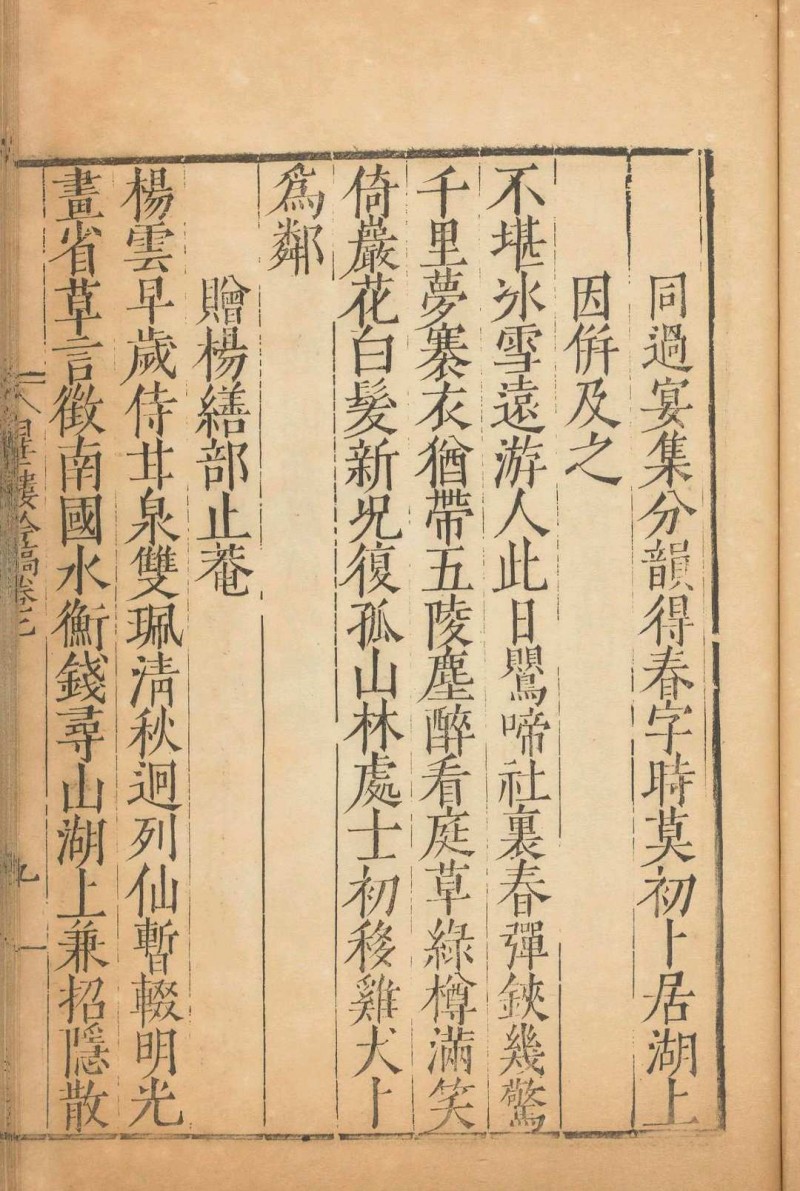 同過宴集分韻得春字時莫初卜居湖上
因倂及之
不堪冰雪遠游人此日鸎啼社裏春彈鋏幾驚
千里夢褰衣猶帶五陵塵醉看庭草綠樽滿笑
倚巖花白髮新況復孤山林處士初移雞犬卜
爲鄰
贈楊繕部止菴
楊雲早歲侍甘泉雙珮清秋迥列仙暫輟明光
畫省草言徵南國水衡錢尋山湖上兼招隱散
卷之
九